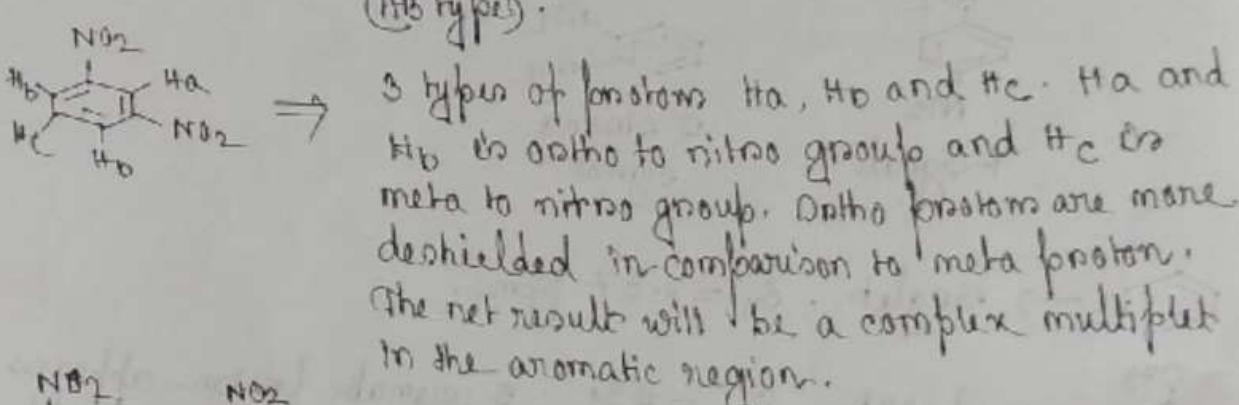 (AB types).
NO2
Hb
Ha
⇒ 3 types of protons Ha, Hb and Hc. Ha and
NO2
Hc
Hb
Hb is ortho to nitro group and Hc is
meta to nitro group. Ortho protons are more
deshielded in comparison to meta proton.
The net result will be a complex multiplet
in the aromatic region.
NO2 NO2